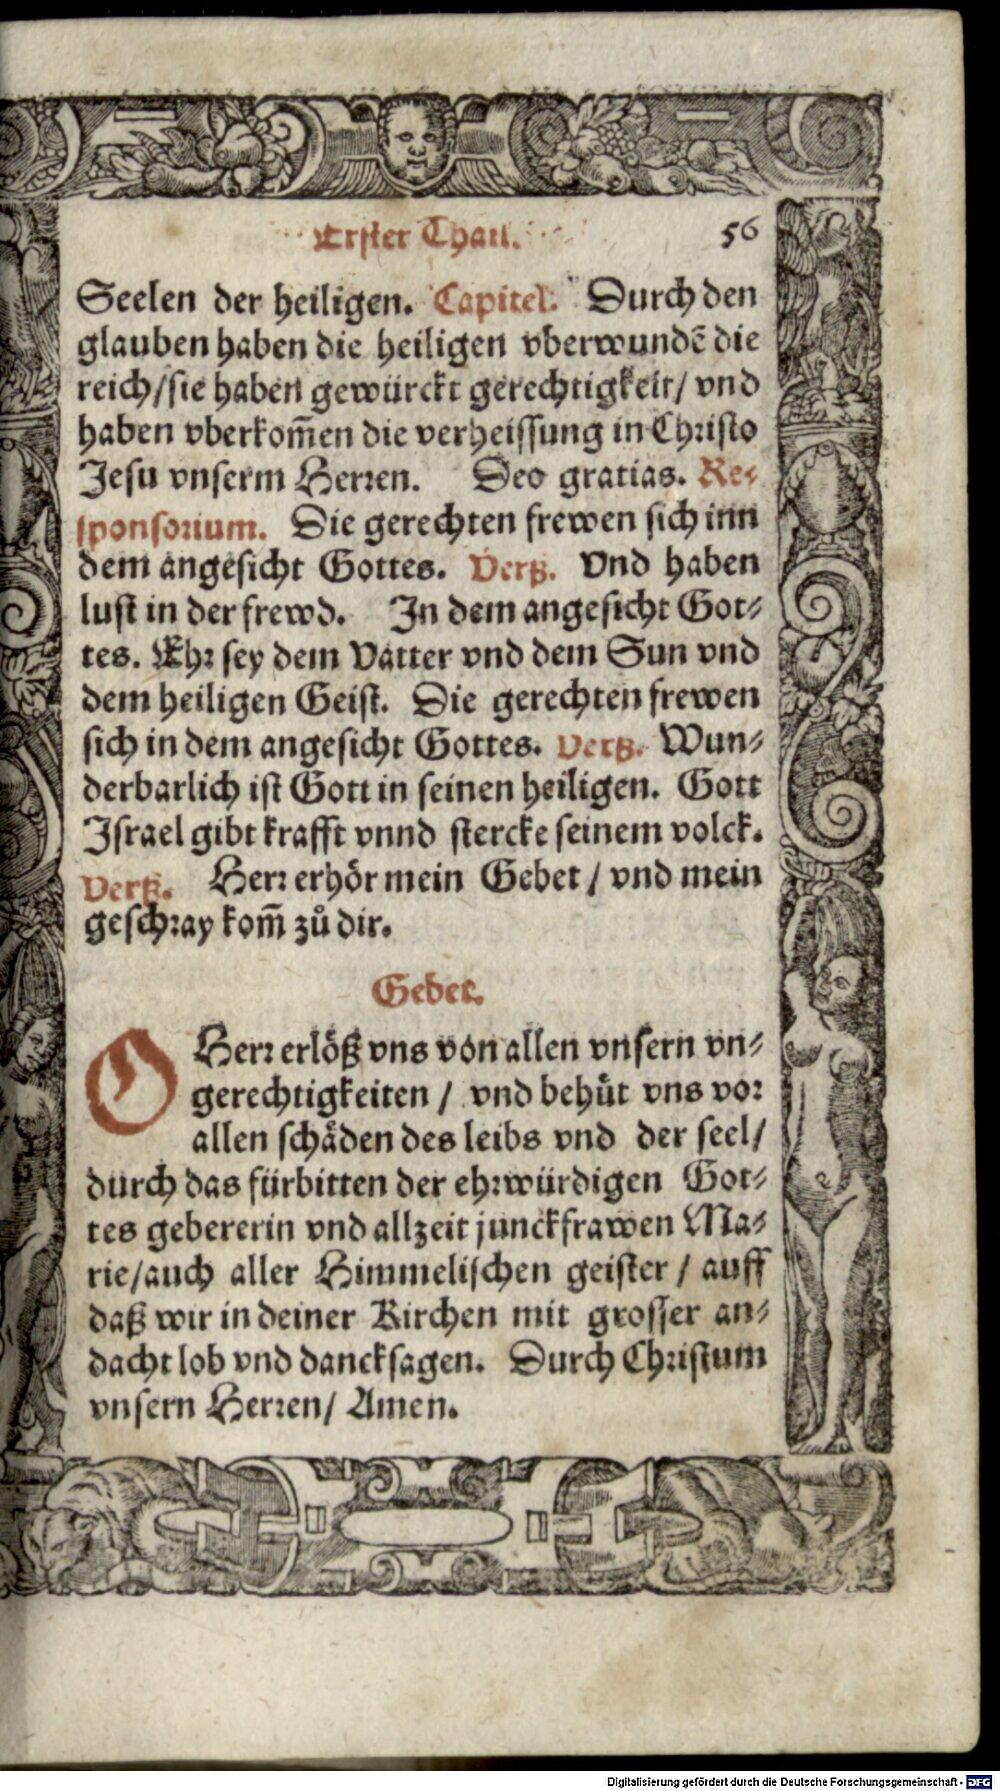 Erster Thail. 56
Seelen der heiligen. Capitel. Durch den
glauben haben die heiligen vberwundē die
reich/sie haben gewürckt gerechtigkeit/ vnd
haben vberkom̄en die verheissung in Christo
Jesu vnserm Herren. Deo gratias. Re-
sponsorium. Die gerechten frewen sich inn
dem angesicht Gottes. Verß. Vnd haben
lust in der frewd. In dem angesicht Got-
tes. Ehr sey dem Vatter vnd dem Sun vnd
dem heiligen Geist. Die gerechten frewen
sich in dem angesicht Gottes. Verß. Wun-
derbarlich ist Gott in seinen heiligen. Gott
Israel gibt krafft vnnd stercke seinem volck.
Verß. Herr erhör mein Gebet / vnd mein
geschray kom̄ zů dir.
Gebet.
O Herr erlöß vns von allen vnsern vn-
gerechtigkeiten / vnd behüt vns vor
allen schäden des leibs vnd der seel/
durch das fürbitten der ehrwürdigen Got-
tes gebererin vnd allzeit junckfrawen Ma-
rie/auch aller Himmelischen geister / auff
daß wir in deiner Kirchen mit grosser an-
dacht lob vnd dancksagen. Durch Christum
vnsern Herren/ Amen.
Digitalisierung gefördert durch die Deutsche Forschungsgemeinschaft - DFG